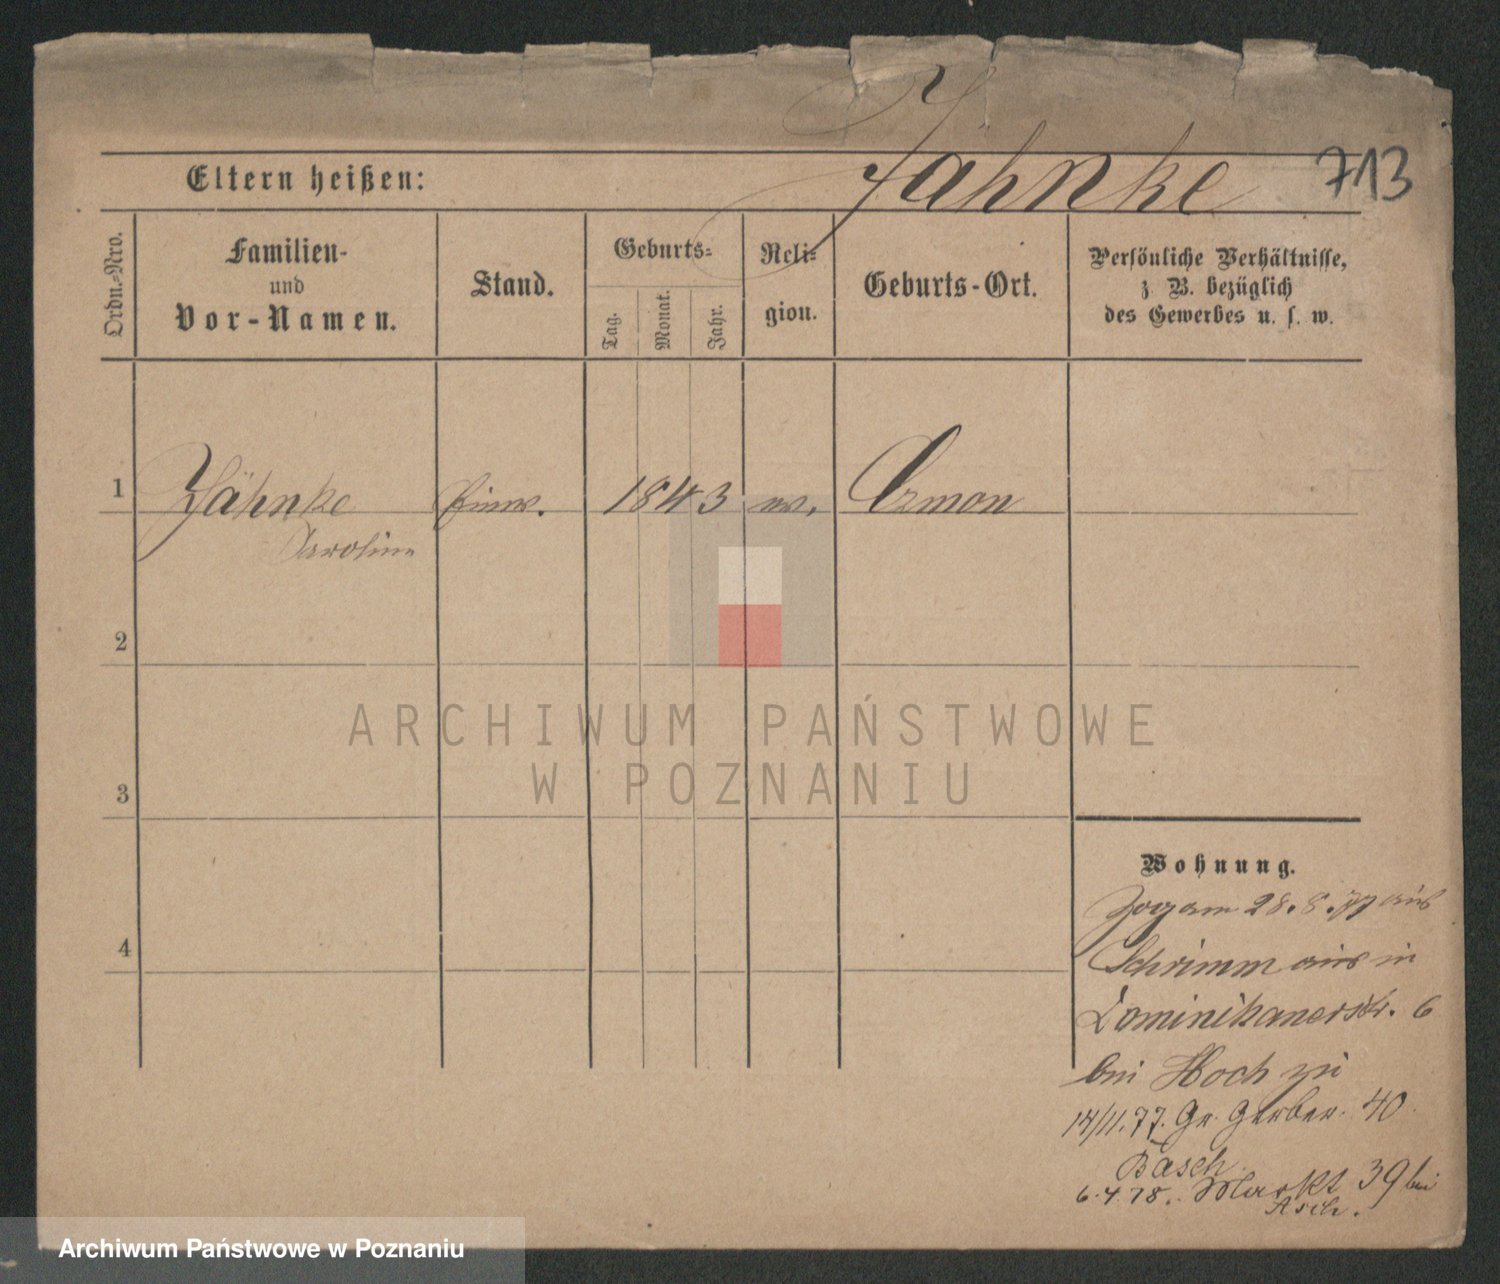 Jähnke 713
Eltern heißen:
Ordn.-Nro.
Familien-
und
Vor-Namen.
Stand.
Geburts-
Tag.
Monat.
Jahr.
Reli-
gion.
Geburts-Ort.
Persönliche Verhältnisse,
z B. bezüglich
des Gewerbes u. s. w.
1 Jähnke 1843 ev.
Caroline
2
3
4
ARCHIWUM PAŃSTWOWE
W POZNANIU
Wohnung.
Zog am 28.8.77 aus
Schrimm aus in
Dominikanerstr. 6
bei Hoch zu
14/11.77. Gr. Gerber. 40
Basch.
6.4.78. Markt 39 bei
Asch.
Archiwum Państwowe w Poznaniu